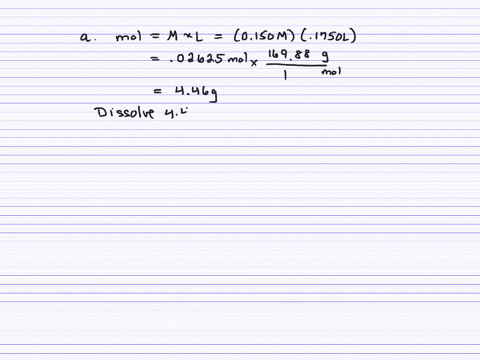 a. mol = M × L = (0.150M)(.1750L)
= .02625 mol × 169.88 g / 1 mol
= 4.46g
Dissolve 4.4